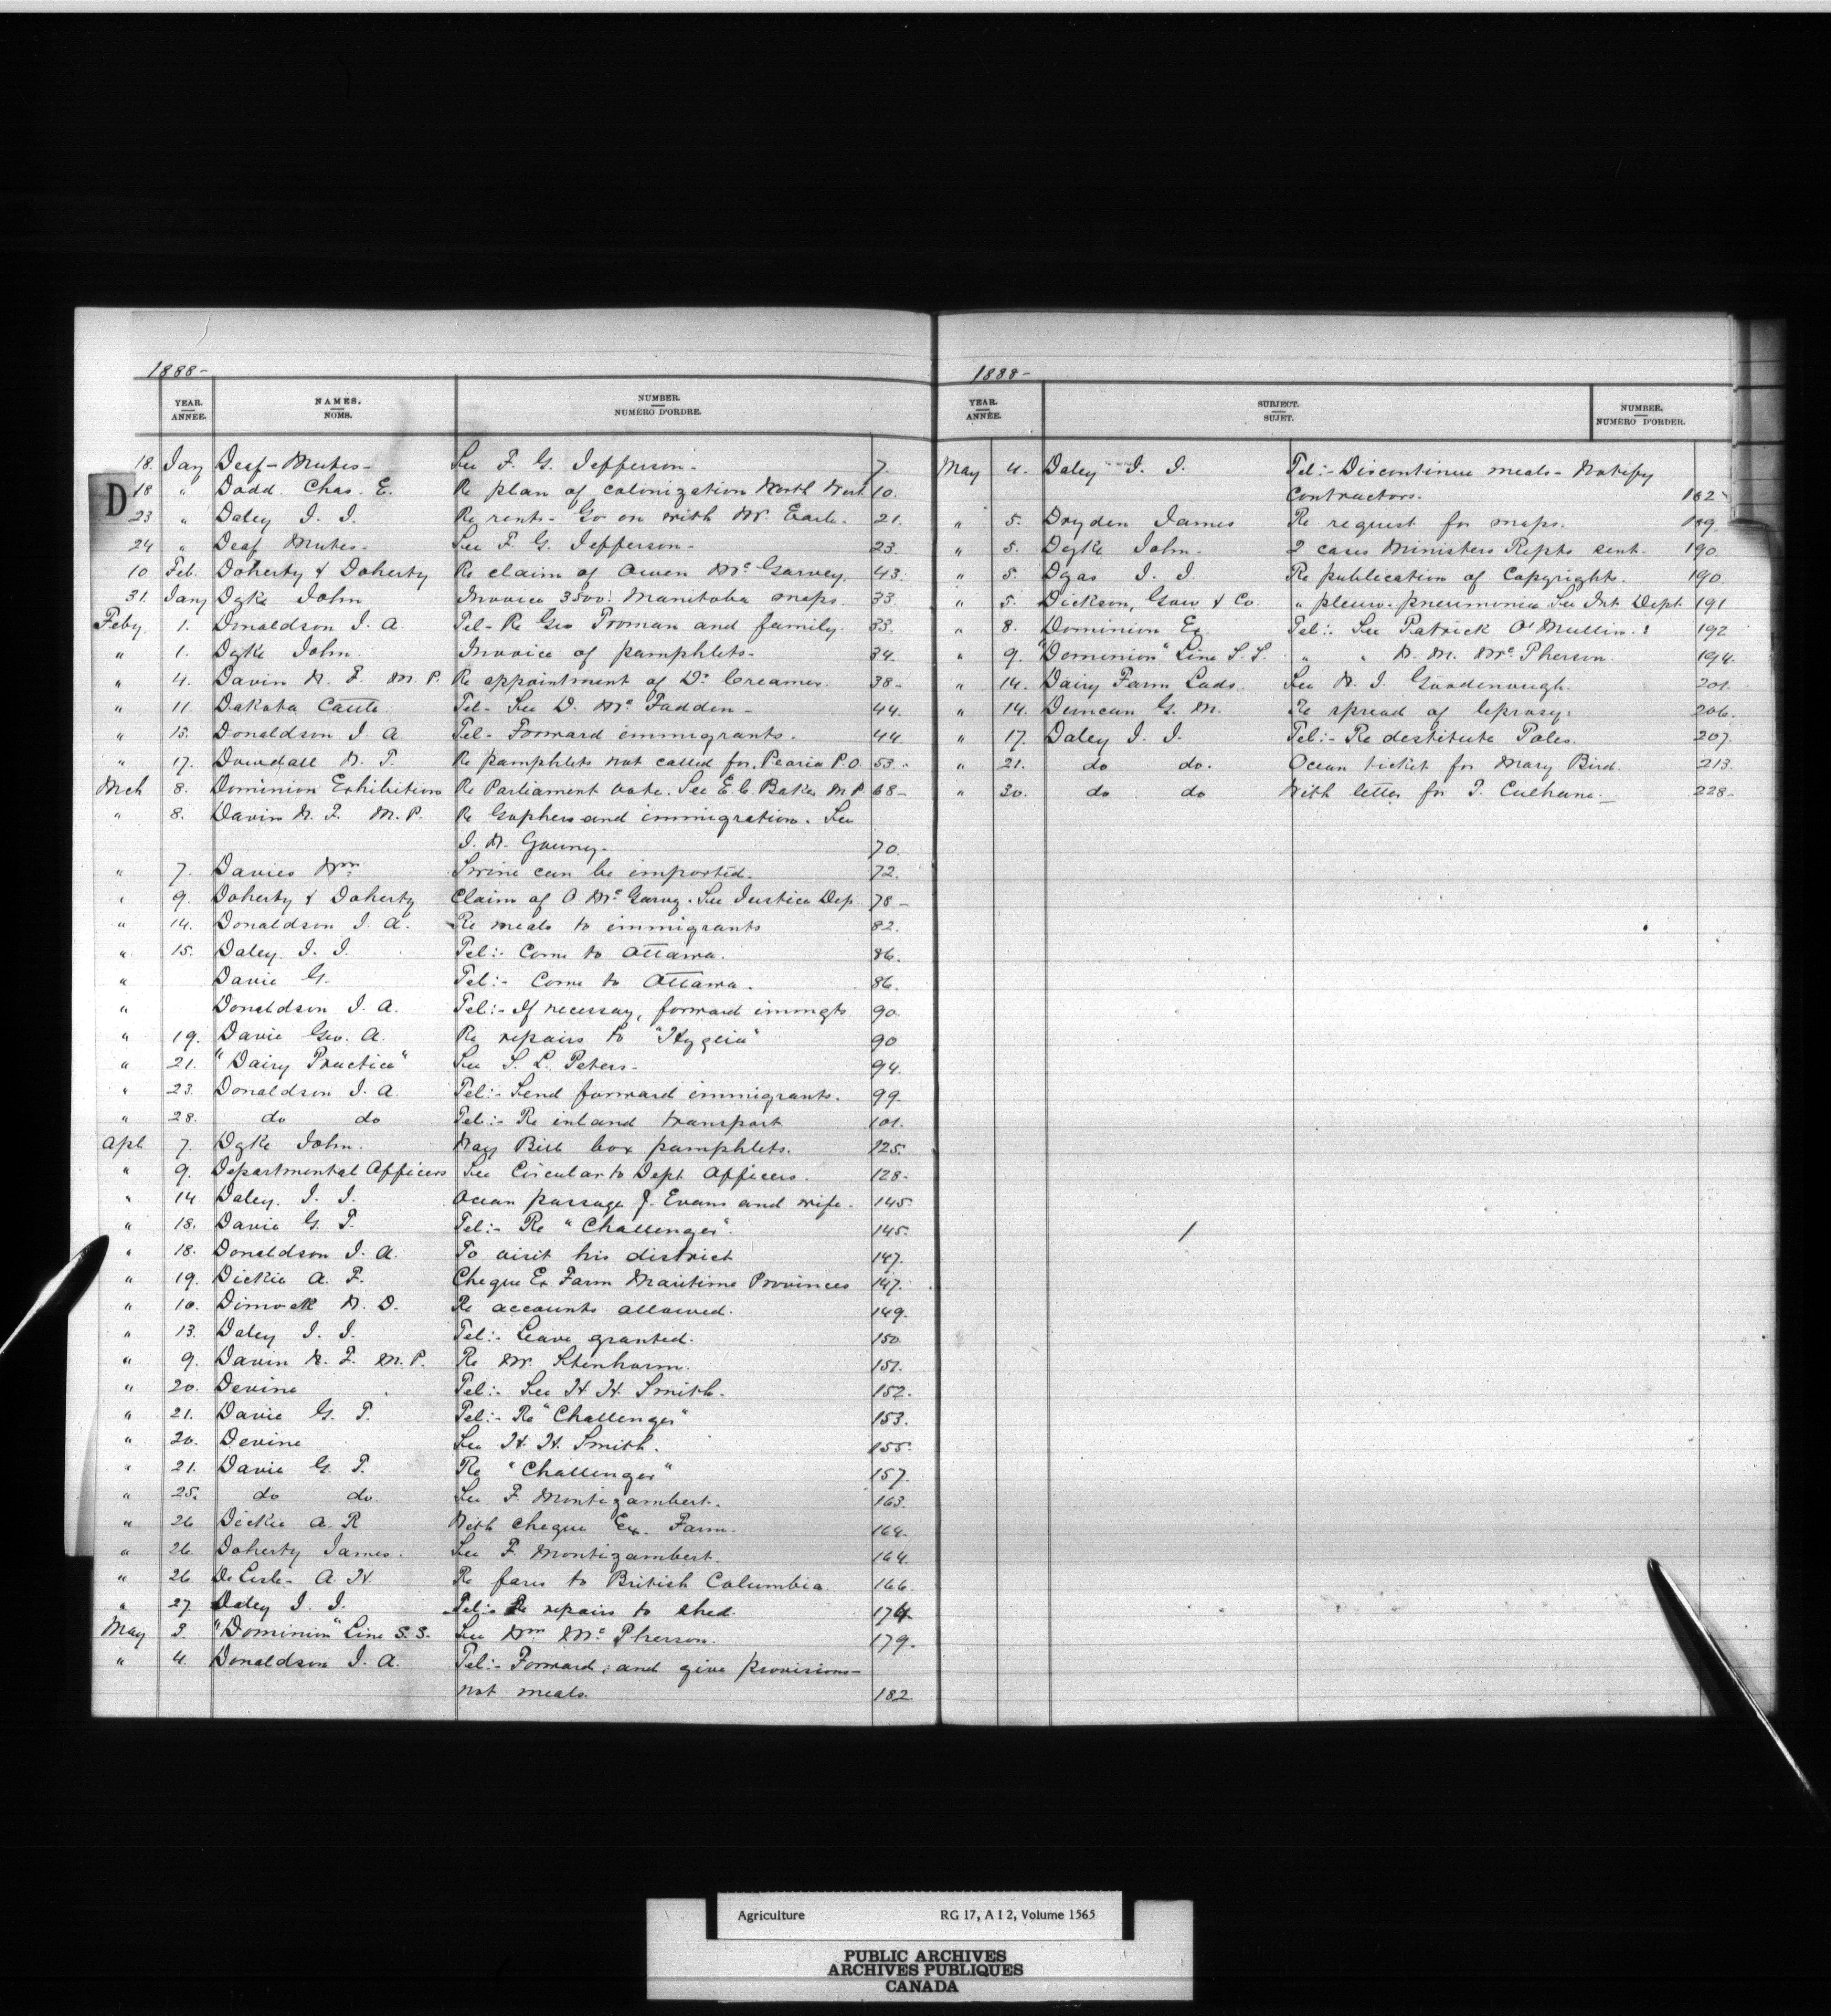 1888-
YEAR. ANNÉE. NAMES. NOMS. NUMBER. NUMÉRO D'ORDRE.
D
18. Jany Deaf-Mutes- See F. G. Jefferson- 7.
18 " Dodd. Chas. E. Re plan of colonization North West 10.
23. " Daley J. J. Re rents- Go on with Mr. Earle- 21.
24 " Deaf Mutes- See F. G. Jefferson- 23.
10 Feb. Doherty & Doherty Re claim of Owen McGarvey. 43.
31. Jany Dyke John Invoice 3500 Manitoba maps. 33.
Feby. 1. Donaldson J. A. Tel- Re Geo Troman and family. 33.
" 1. Dyke John. Invoice of pamphlets- 34.
" 4. Davin N. F. M. P. Re appointment of Dr Creamer. 38-
" 11. Dakota Cattle Tel- See D. McFadden- 44.
" 13. Donaldson J. A Tel- Forward immigrants. 44.
" 17. Dowdall N. T. Re pamphlets not called for. Peoria P.O. 53.
Mch 8. Dominion Exhibition Re Parliament vote. See E. C. Baker M P 68-
" 8. Davin N. F. M. P. Re Gophers and immigration. See
J. N. 70.
" 7. Davies Wm Swine can be imported. 72.
" 9. Doherty & Doherty Claim of O. McGarvy. See Justice Dep 78-
" 14. Donaldson J. A. Re meals to immigrants 82.
" 15. Daley J. J. Tel:- Come to Ottawa. 86.
" Davie G. Tel:- Come to Ottawa. 86.
" Donaldson J. A. Tel:- If necessay, forward immgts 90.
" 19. Davie Geo. A. Re repairs to "Hygeia" 90
" 21. "Dairy Practice" See S. L. Peters- 94.
" 23. Donaldson J. A. Tel:- Send forward immigrants. 99.
" 28. do do Tel:- Re inland transport 101.
Apl 7. Dyke John. Way Bill box pamphlets. 125.
" 9. Departmental Officers See Circular to Dept. Officers. 128.
" 14 Daley. J. J. Ocean passage J. Evans and wife. 145.
" 18. Davie G. T. Tel:- Re "Challenger". 145.
" 18. Donaldson J. A. To visit his district 147.
" 19. Dickie A. F. Cheque Ex. Farm Maritime Provinces 147.
" 10. Dimock N. D. Re accounts allowed. 149.
" 13. Daley J. J. Tel:- Leave granted. 150.
" 9. Davin N. F. M. P. Re Mr. 151.
" 20. Devine Tel:- See H. H. Smith. 152.
" 21. Davie G. T. Tel:- Re "Challenger" 153.
" 20. Devine See H. H. Smith. 155.
" 21. Davie G. T. Re "Challenger" 157.
" 25. do do. See F. Montizambert. 163.
" 26 Dickie A. R With cheque Ex. Farm. 164.
" 26. Doherty James. See F. Montizambert. 164.
" 26. De Lisle- A. H. Re fares to British Columbia. 166.
" 27. Daley J. J. Tel:- Re repairs to shed. 174
May 3. "Dominion" Line S. S. See Wm McPherson. 179.
" 4. Donaldson J. A. Tel:- Forward, and give provisions-
not meals. 182.
1888-
YEAR. ANNÉE. SUBJECT. SUJET. NUMBER. NUMÉRO D'ORDER.
May 4. Daley J. J. Tel:- Discontinue meals- Notify
Contractors. 182-
" 5. Dryden James Re request for maps. 189.
" 5. Dyke John. 2 cases Ministers Repts sent. 190.
" 5. Dyas J. J. Re publication of Copyrights. 190.
" 5. Dickson, Gow & Co. " pleuro-pneumonia See Int Dept. 191
" 8. Dominion Ex. Tel:- See Patrick O'Mullin. 192
" 9. "Dominion" Line S. S. " " McPherson. 194.
" 14. Dairy Farm Lads. See W. J. Goodenough. 201.
" 14. Duncan G. M. Re spread of leprosy. 206.
" 17. Daley J. J. Tel:- Re destitute Poles. 207.
" 21. do do. Ocean ticket for Mary Bird. 213.
" 30. do do With letter for T. Culhane.- 228-
Agriculture RG 17, A I 2, Volume 1565
PUBLIC ARCHIVES
ARCHIVES PUBLIQUES
CANADA